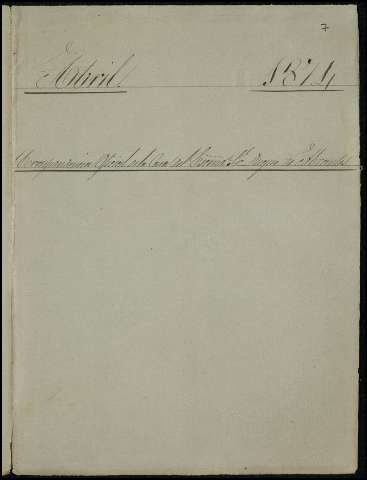 7
Abril 1874
Correspondencia Oficial de la Casa del Exmo Sr. Duque de Abrantes